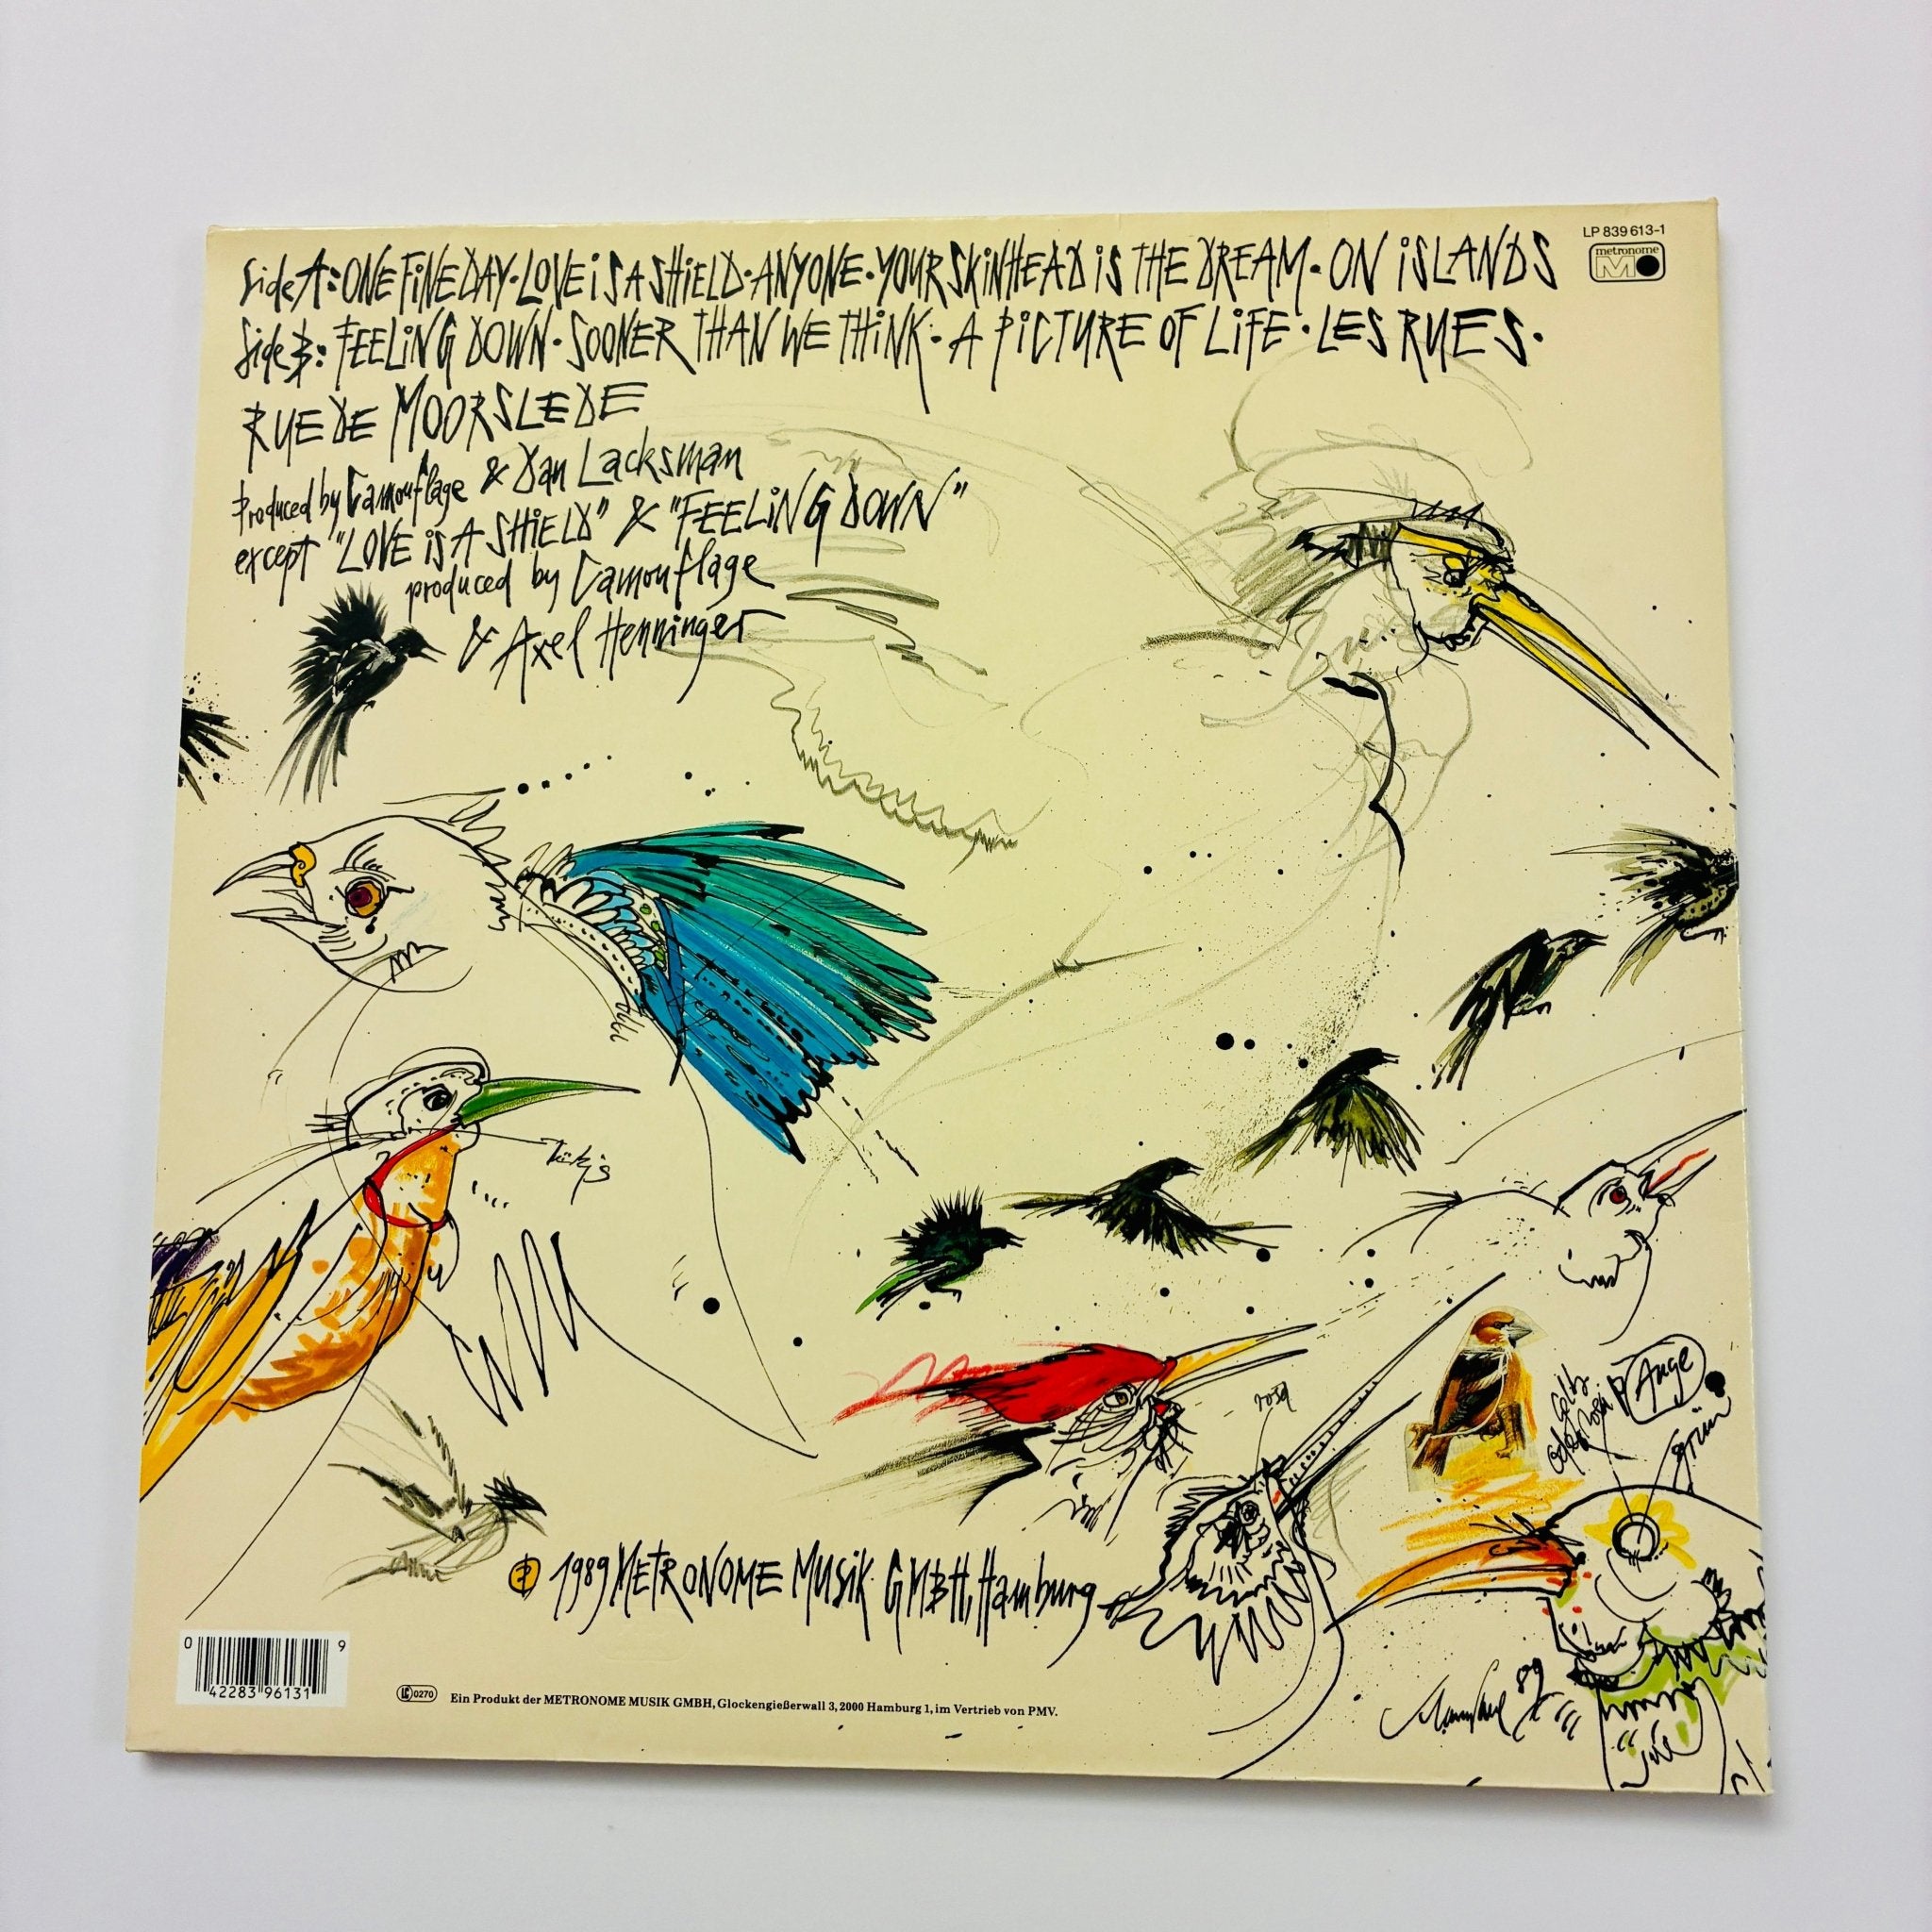 LP 839 613-1
metronome
M
Side A: ONE FiNE DAY · LOVE iS A SHiELD · ANYONE · YOUR SKiNHEAD iS THE DREAM · ON iSLANDS
Side B: FEELiNG DOWN · SOONER THAN WE THiNK · A PiCTURE OF LiFE · LES RUES ·
RUE DE MOORSLEDE
Produced by Camouflage & Dan Lacksman
except "LOVE iS A SHiELD" & "FEELiNG DOWN"
produced by Camouflage
& Axel Henninger
Türkis
rosa
Gelb
oder rosa
Auge
grün
℗ 1989 METRONOME MUSiK GMBH, Hamburg
89
0 42283 96131 9
LC 0270 Ein Produkt der METRONOME MUSIK GMBH, Glockengießerwall 3, 2000 Hamburg 1, im Vertrieb von PMV.